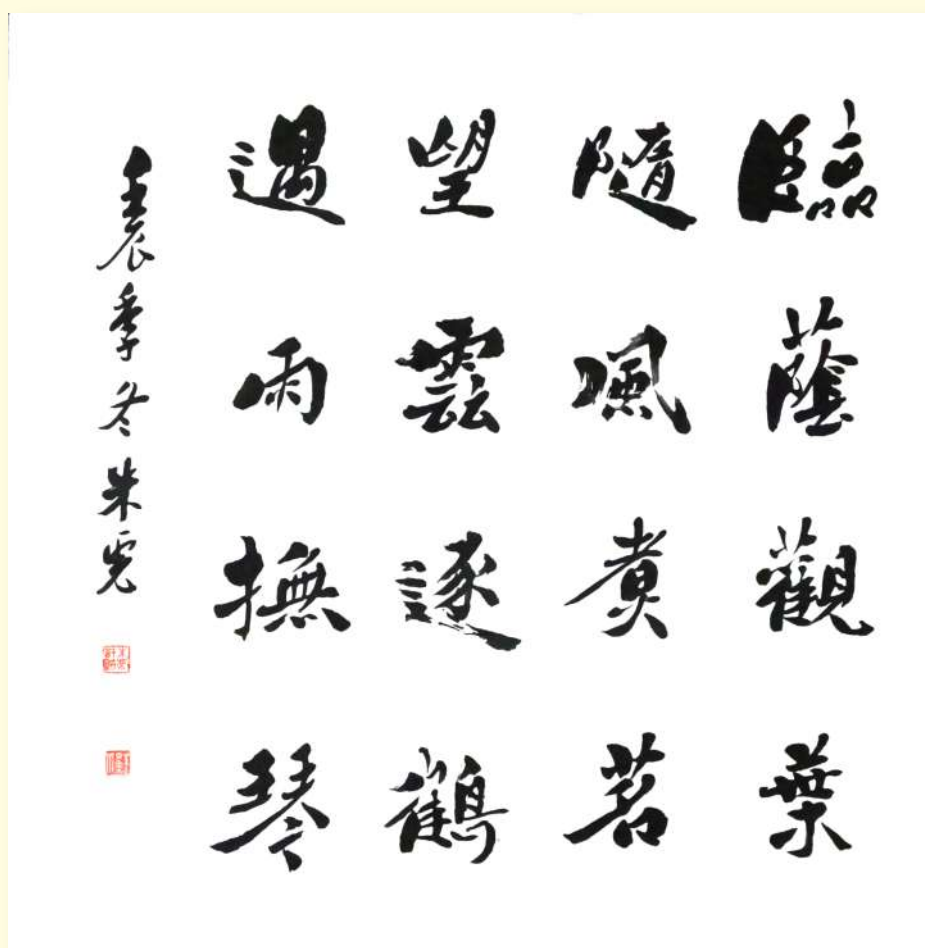 臨蔭觀葉
隨風煮茗
望雲逐鶴
遇雨撫琴
壬辰季冬朱